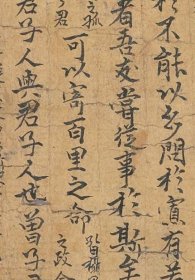 於不能以多問於寡有
者吾友嘗從事於斯
之孤
君
可以寄百里之命
孔曰攝
之政令
君子人與君子人也曾子